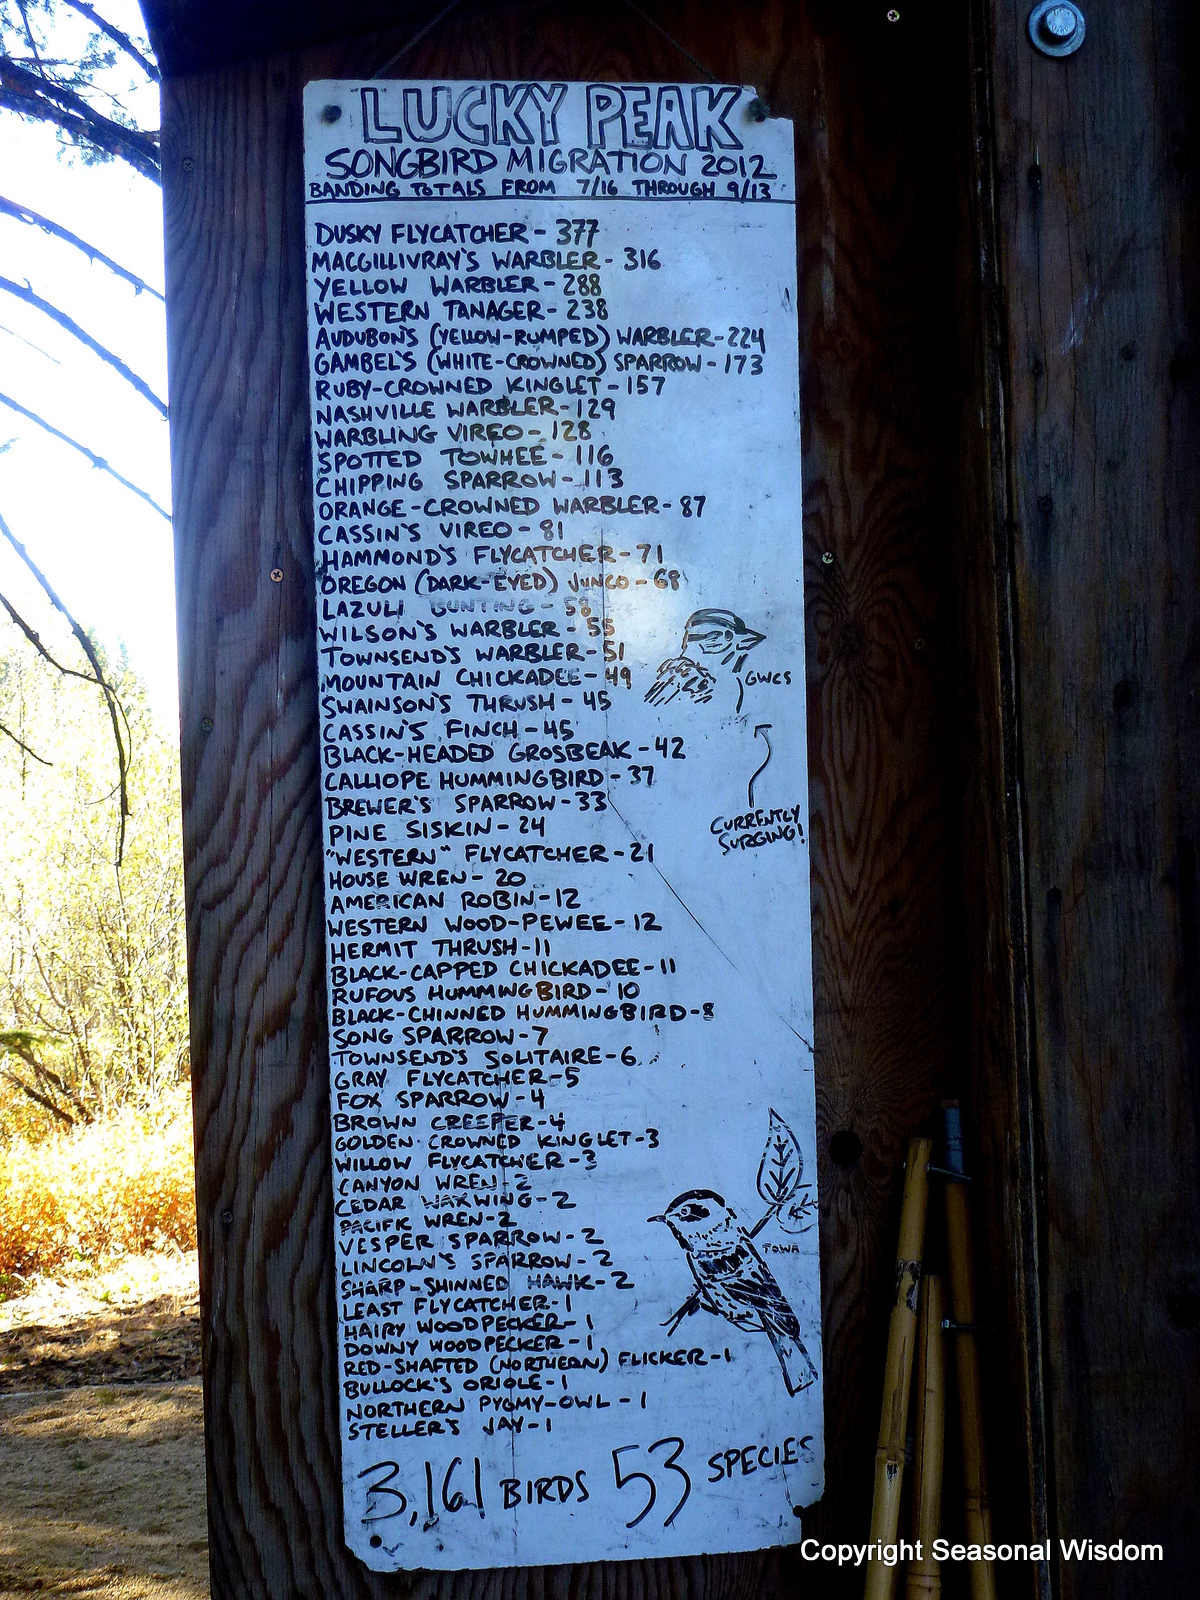 LUCKY PEAK
SONGBIRD MIGRATION 2012
BANDING TOTALS FROM 7/16 THROUGH 9/13
DUSKY FLYCATCHER - 377
MACGILLIVRAY'S WARBLER - 316
YELLOW WARBLER - 288
WESTERN TANAGER - 238
AUDUBON'S (YELLOW-RUMPED) WARBLER - 224
GAMBEL'S (WHITE-CROWNED) SPARROW - 173
RUBY-CROWNED KINGLET - 157
NASHVILLE WARBLER - 129
WARBLING VIREO - 128
SPOTTED TOWHEE - 116
CHIPPING SPARROW - 113
ORANGE-CROWNED WARBLER - 87
CASSIN'S VIREO - 81
HAMMOND'S FLYCATCHER - 71
OREGON (DARK-EYED) JUNCO - 68
LAZULI BUNTING - 58
WILSON'S WARBLER - 55
TOWNSEND'S WARBLER - 51
MOUNTAIN CHICKADEE - 49
GWCS
SWAINSON'S THRUSH - 45
CASSIN'S FINCH - 45
BLACK-HEADED GROSBEAK - 42
CALLIOPE HUMMINGBIRD - 37
BREWER'S SPARROW - 33
CURRENTLY
SURGING!
PINE SISKIN - 24
"WESTERN" FLYCATCHER - 21
HOUSE WREN - 20
AMERICAN ROBIN - 12
WESTERN WOOD-PEWEE - 12
HERMIT THRUSH - 11
BLACK-CAPPED CHICKADEE - 11
RUFOUS HUMMINGBIRD - 10
BLACK-CHINNED HUMMINGBIRD - 8
SONG SPARROW - 7
TOWNSEND'S SOLITAIRE - 6
GRAY FLYCATCHER - 5
FOX SPARROW - 4
BROWN CREEPER - 4
GOLDEN-CROWNED KINGLET - 3
WILLOW FLYCATCHER - 3
CANYON WREN - 2
CEDAR WAXWING - 2
PACIFIC WREN - 2
VESPER SPARROW - 2
TOWA
LINCOLN'S SPARROW - 2
SHARP-SHINNED HAWK - 2
LEAST FLYCATCHER - 1
HAIRY WOODPECKER - 1
DOWNY WOODPECKER - 1
RED-SHAFTED (NORTHERN) FLICKER - 1
BULLOCK'S ORIOLE - 1
NORTHERN PYGMY-OWL - 1
STELLER'S JAY - 1
3,161 BIRDS 53 SPECIES
Copyright Seasonal Wisdom